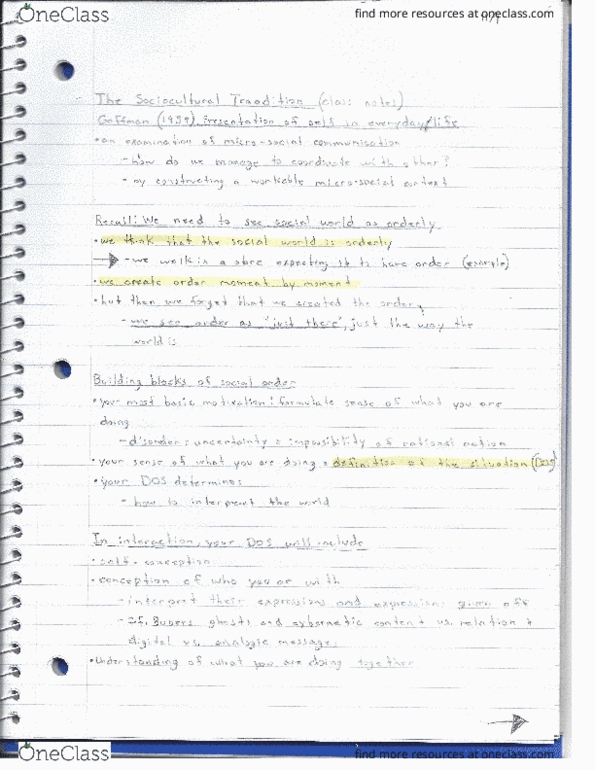 OneClass
find more resources at oneclass.com
The Sociocultural Tradition (class notes)
Goffman (1959) Presentation of self in everyday life
• an examination of micro-social communication
- how do we manage to coordinate with other?
- by constructing a workable micro-social context
Recall: We need to see social world as orderly
• we think that the social world is orderly
- we walk in a store expecting it to have order (example)
• we create order moment by moment
• but then we forget that we created the order,
- we see order as "just there", just the way the
world is
Building blocks of social order
• your most basic motivation: formulate sense of what you are
doing
- disorder: uncertainty = impossibility of rational action
• your sense of what you are doing = definition of the situation (DOS)
• your DOS determines
- how to interpret the world
In interaction, your DOS will include
• self-conception
• conception of who you are with
- interpret their expressions and expressions given off
- and cybernetic content vs. relation +
digital vs. analogic messages
• Understanding of what you are doing together
OneClass
find more resources at oneclass.com